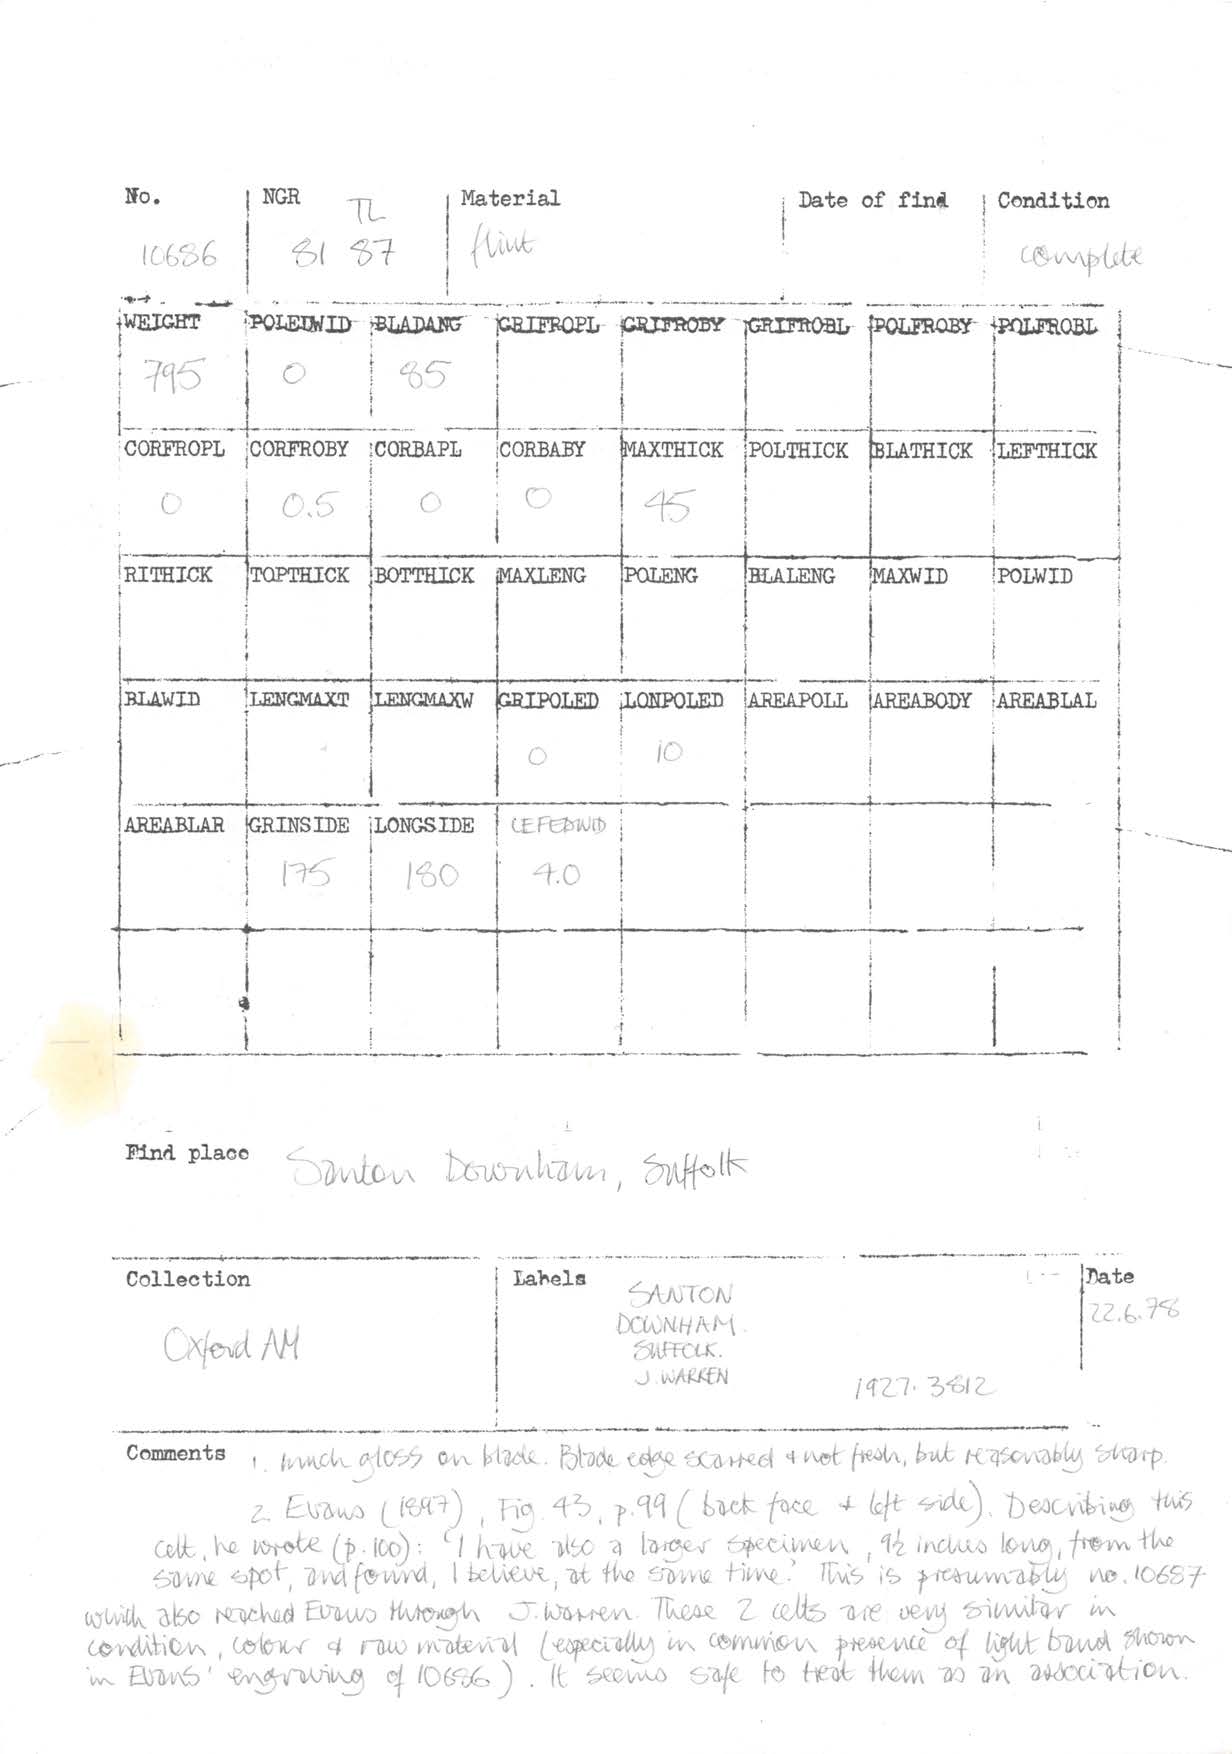 No. NGR TL Material Date of find Condition
10686 81 87 flint complete
WEIGHT POLEDWID BLADANG GRIFROPL GRIFROBY GRIFROBL POLFROBY POLFROBL
795 0 85
CORFROPL CORFROBY CORBAPL CORBABY MAXTHICK POLTHICK BLATHICK LEFTHICK
0 0.5 0 0 45
RITHICK TOPTHICK BOTTHICK MAXLENG POLENG BLALENG MAXWID POLWID
BLAWID LENGMAXT LENGMAXW GRIPOLED LONPOLED AREAPOLL AREABODY AREABLAL
0 10
AREABLAR GRINSIDE LONGSIDE LEFEDWID
175 180 4.0
Find place Santon Downham, Suffolk
Collection Labels SANTON Date
DOWNHAM. 22.6.78
Oxford AM SUFFOLK.
J. WARREN 1927.3812
Comments 1. Much gloss on blade. Blade edge scarred & not fresh, but reasonably sharp.
2. Evans (1897), Fig. 43, p.99 (back face & left side). Describing this
celt, he wrote (p.100): 'I have also a larger specimen, 9½ inches long, from the
same spot, and found, I believe, at the same time.' This is presumably no. 10687
which also reached Evans through J. Warren. These 2 celts are very similar in
condition, colour & raw material (especially in common presence of light band shown
in Evans' engraving of 10686). It seems safe to treat them as an association.